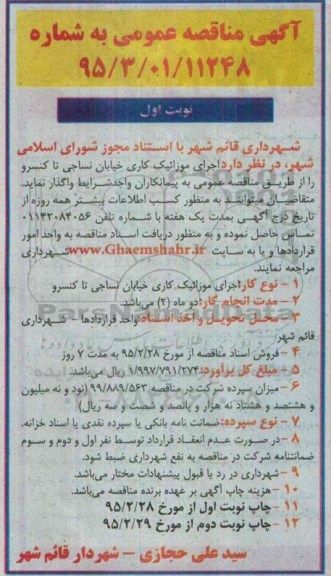 آگهی مناقصه عمومی به شماره
۹۵/۳/۰۱/۱۱۲۴۸
نوبت اول
شهرداری قائم شهر با استناد مجوز شورای اسلامی
شهر، در نظر دارد اجرای موزائیک کاری خیابان نساجی تا کنسرو
را از طریق مناقصه عمومی به پیمانکاران واجدشرایط واگذار نماید.
متقاضیان میتوانند به منظور کسب اطلاعات بیشتر همه روزه از
تاریخ درج آگهی بمدت یک هفته با شماره تلفن ۰۱۱۴۲۰۸۴۰۵۶
تماس حاصل نموده و به منظور دریافت اسناد مناقصه به واحد امور
قراردادها و یا به سایت www.Ghaemshahr.ir شهرداری
مراجعه نمایند.
۱ - نوع کار: اجرای موزائیک کاری خیابان نساجی تا کنسرو
۲ - مدت انجام کار: دو ماه (۲) می‌باشد.
۳ - محل تحویل واخذ اسناد: واحد قراردادها - شهرداری
قائم شهر
۴ - فروش اسناد مناقصه از مورخ ۹۵/۲/۲۸ به مدت ۷ روز
۵ - مبلغ کل برآورد: ۱/۹۹۷/۷۹۱/۲۷۴ ریال می‌باشد.
۶ - میزان سپرده شرکت در مناقصه ۹۹/۸۸۹/۵۶۳ (نود و نه میلیون
و هشتصد و هشتاد نه هزار و پانصد و شصت و سه ریال)
۷ - نوع سپرده: ضمانت نامه بانکی یا سپرده نقدی یا اسناد خزانه.
۸ - در صورت عدم انعقاد قرارداد توسط نفر اول و دوم و سوم
ضمانتنامه شرکت در مناقصه به نفع شهرداری ضبط شود.
۹ - شهرداری در رد یا قبول پیشنهادات مختار می‌باشد.
۱۰ - هزینه چاپ آگهی بر عهده برنده مناقصه می‌باشد.
۱۱ - چاپ نوبت اول از مورخ ۹۵/۲/۲۸
۱۲ - چاپ نوبت دوم از مورخ ۹۵/۲/۲۹
سید علی حجازی - شهردار قائم شهر